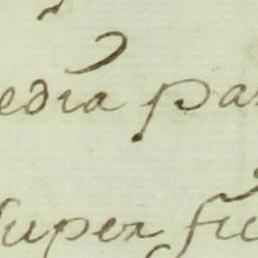 edia par
super fic